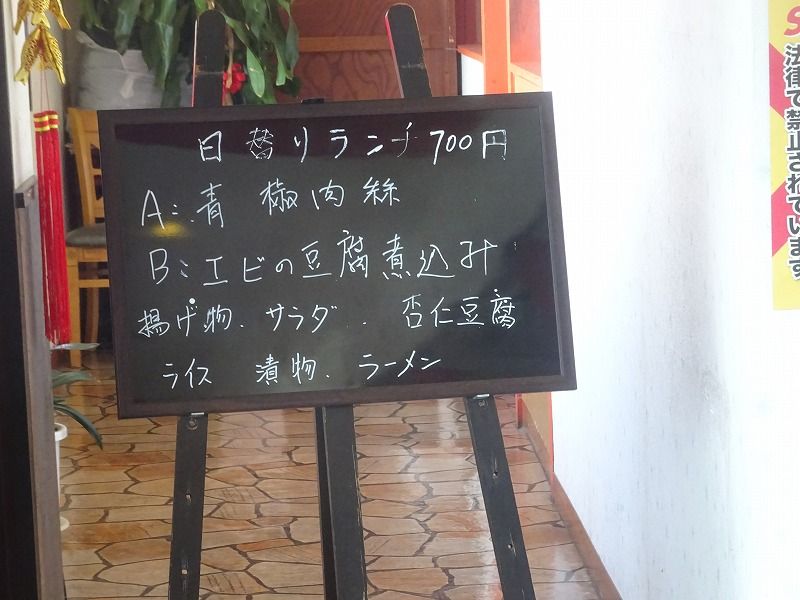 日替りランチ 700円
A: 青椒肉絲
B: エビの豆腐煮込み
揚げ物、サラダ、杏仁豆腐
ライス 漬物、ラーメン
法律で禁止されています